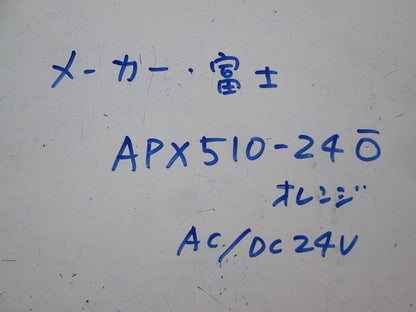 メーカー・富士
APX510-24Ō
オレンジ
AC/DC24V